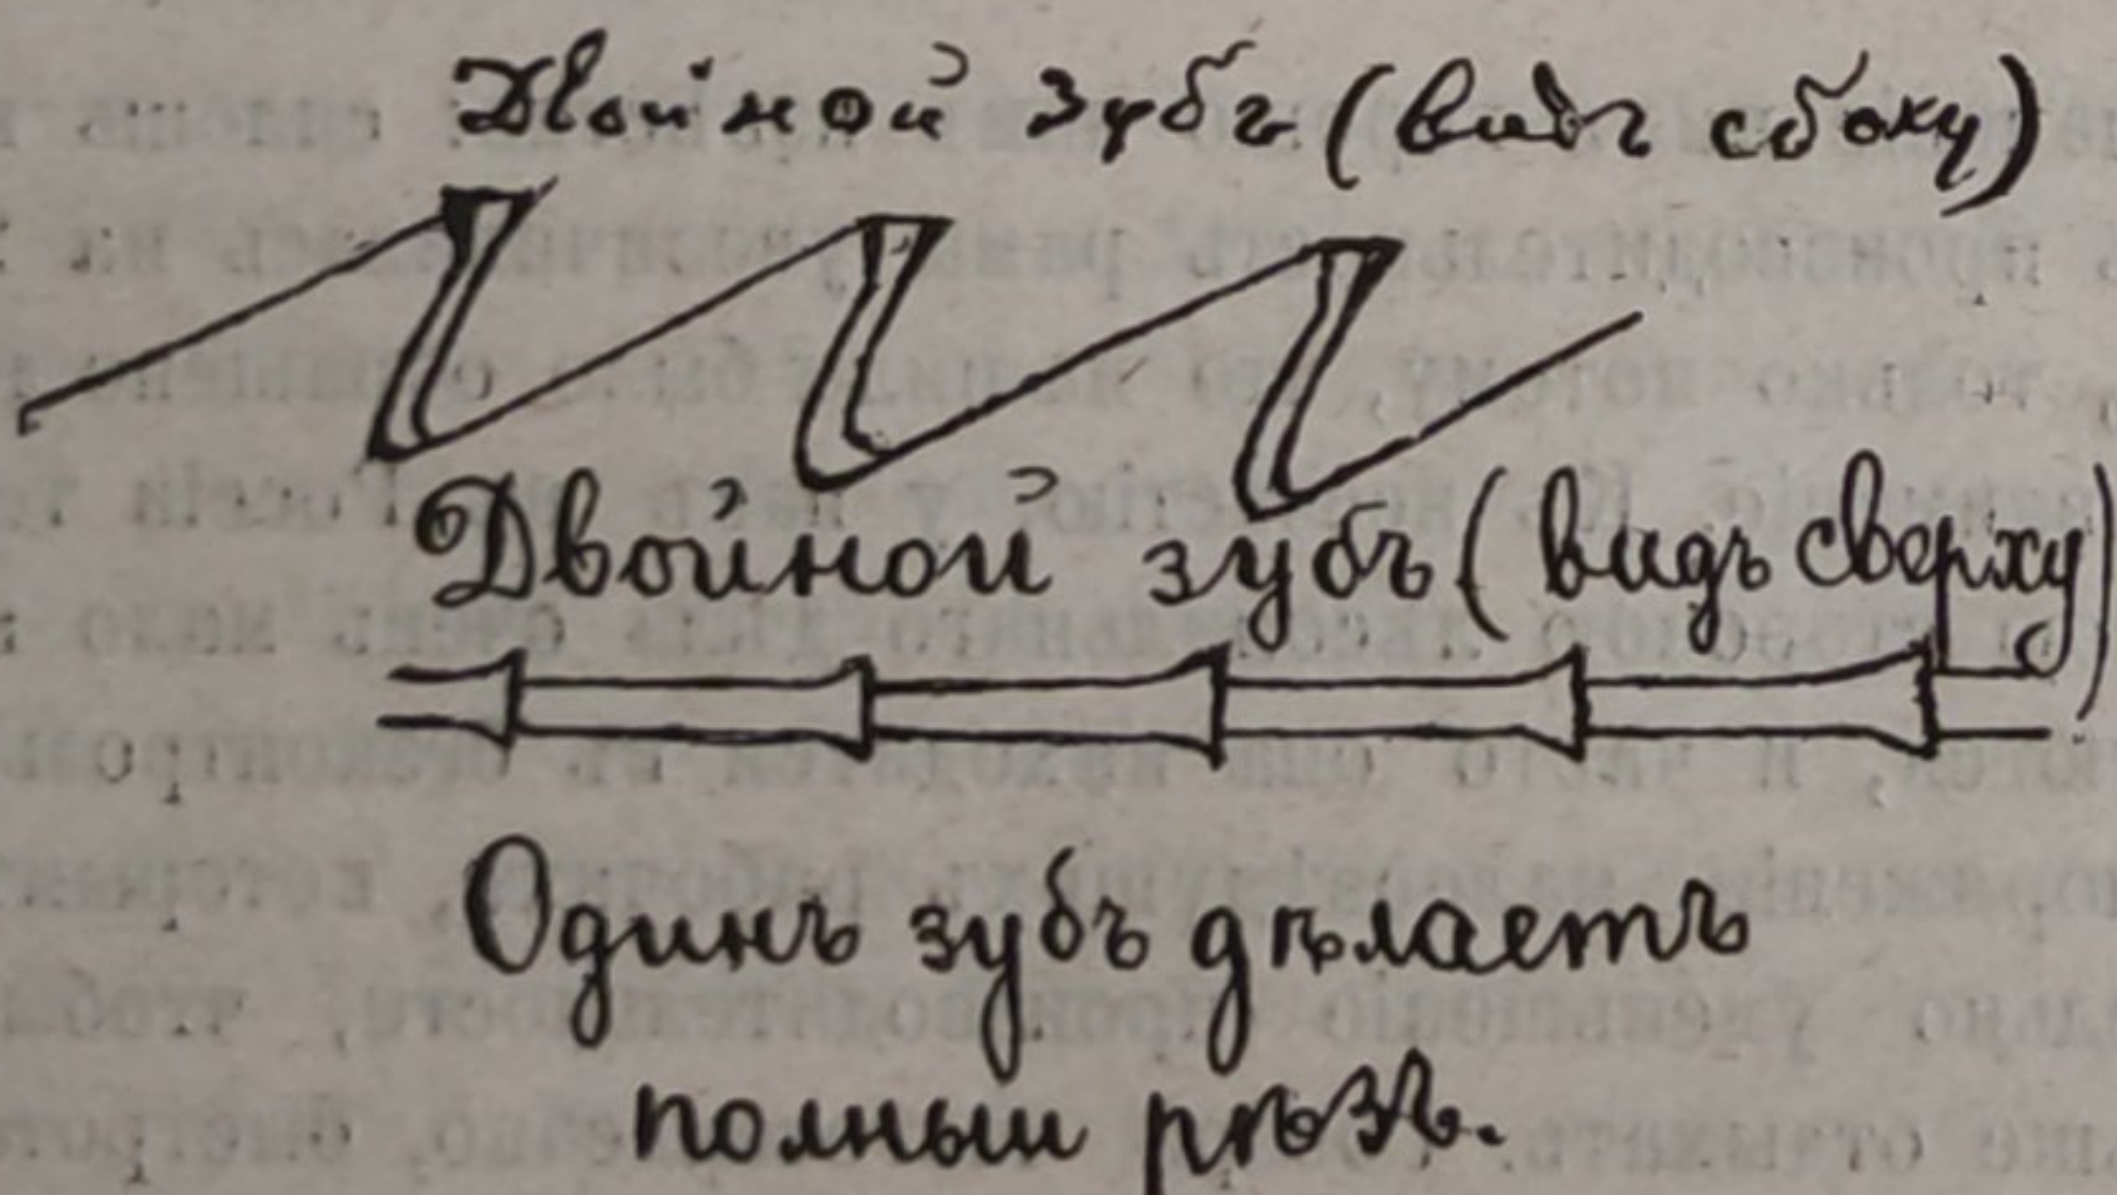 Двойной зубъ (видъ сбоку)
Двойной зубъ (видъ сверху)
Одинъ зубъ дѣлаетъ
полный рѣзъ.